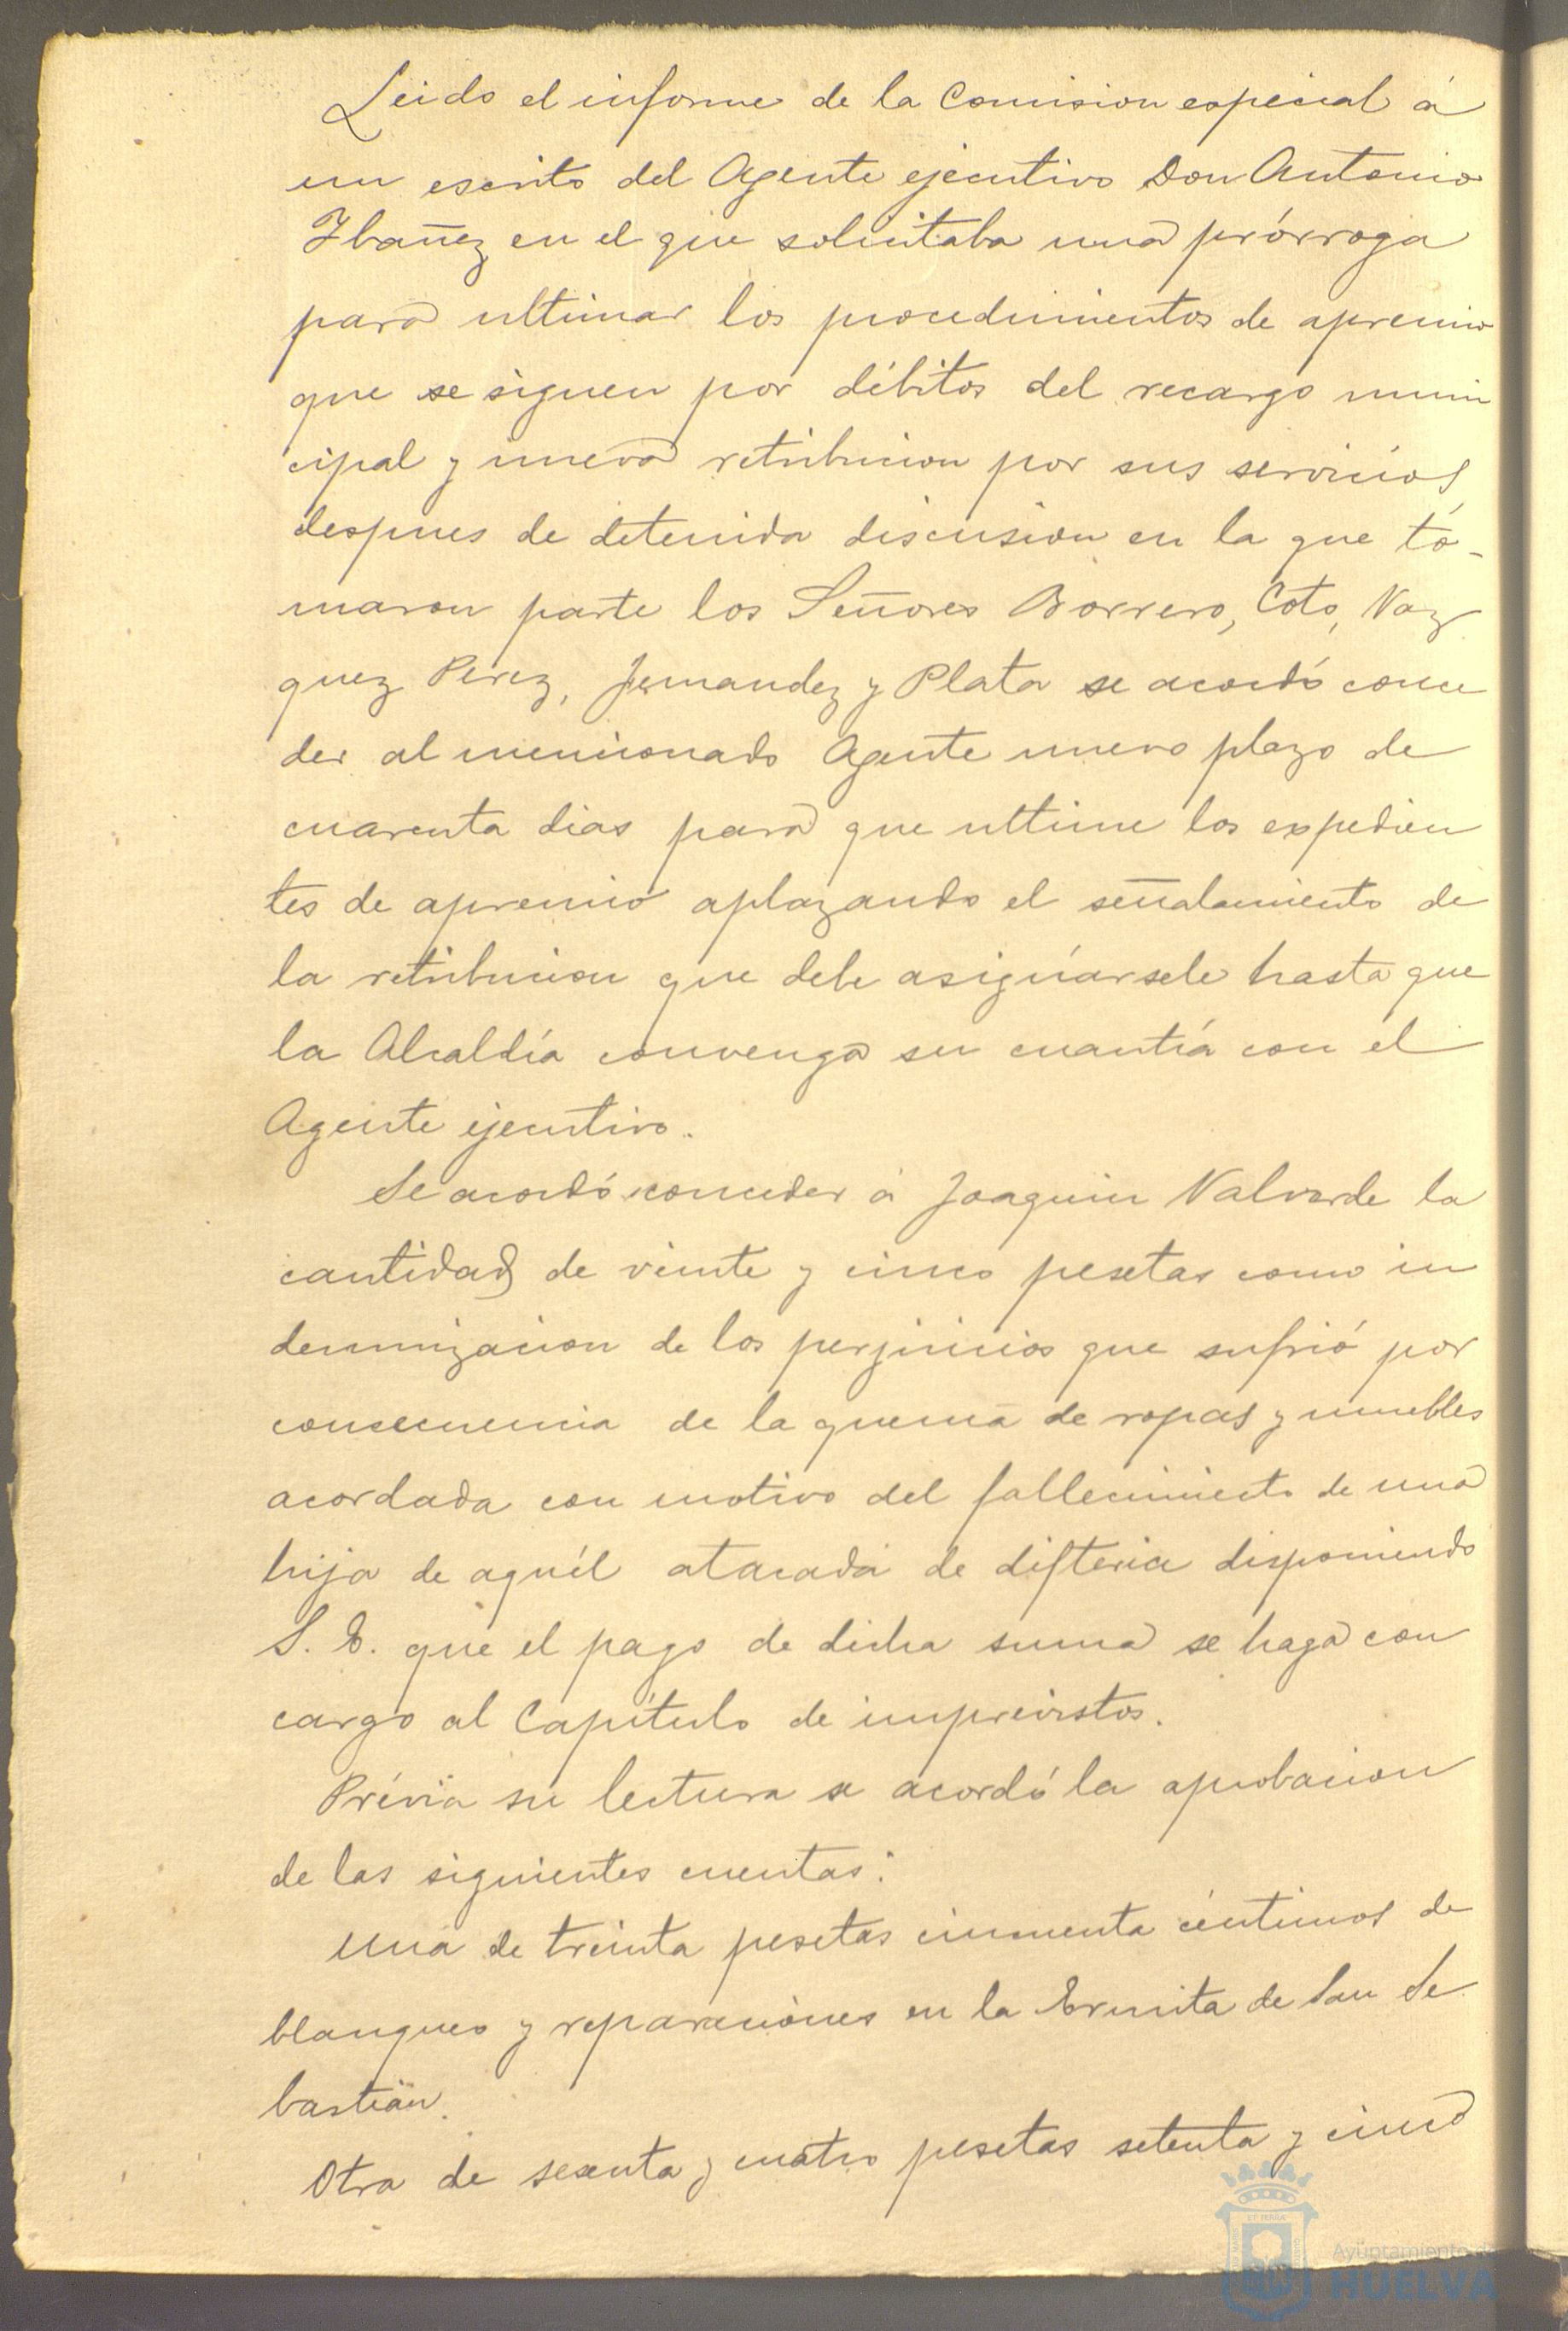 Leido el informe de la Comision especial á
un escrito del Agente ejecutivo Don Antonio
Ibañez en el que solicitaba una prórroga
para ultimar los procedimientos de apremio
que se siguen por débitos del recargo muni
cipal y nueva retribucion por sus servicios,
despues de detenida discusion en la que to-
maron parte los Señores Borrero, Coto, Vaz
quez Perez, Fernandez y Plata se acordó conce
der al mencionado Agente nuevo plazo de
cuarenta dias para que ultime los expedien
tes de apremio aplazando el señalamiento de
la retribucion que debe asignársele hasta que
la Alcaldía convenga su cuantía con el
Agente ejecutivo.
Se acordó conceder á Joaquin Valverde la
cantidad de veinte y cinco pesetas como in
demnizacion de los perjuicios que sufrió por
consecuencia de la quema de ropas y muebles
acordada con motivo del fallecimiento de una
hija de aquél atacada de difteria disponiendo
S. E. que el pago de dicha suma se haga con
cargo al Capítulo de imprevistos.
Prévia su lectura se acordó la aprobacion
de las siguientes cuentas:
Una de treinta pesetas cincuenta céntimos de
blanqueo y reparaciones en la Ermita de San Se
bastian.
Otra de sesenta y cuatro pesetas setenta y cinco
Ayuntamiento de
HUELVA